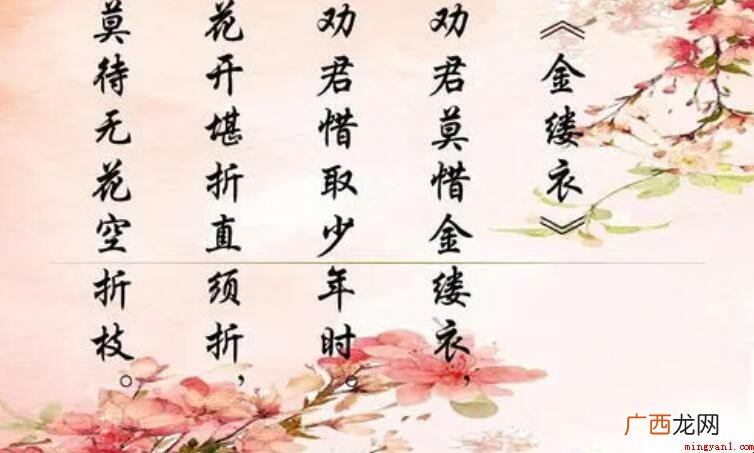 《金缕衣》
劝君莫惜金缕衣，
劝君惜取少年时。
花开堪折直须折，
莫待无花空折枝。
广西龙网
mingyan1.com